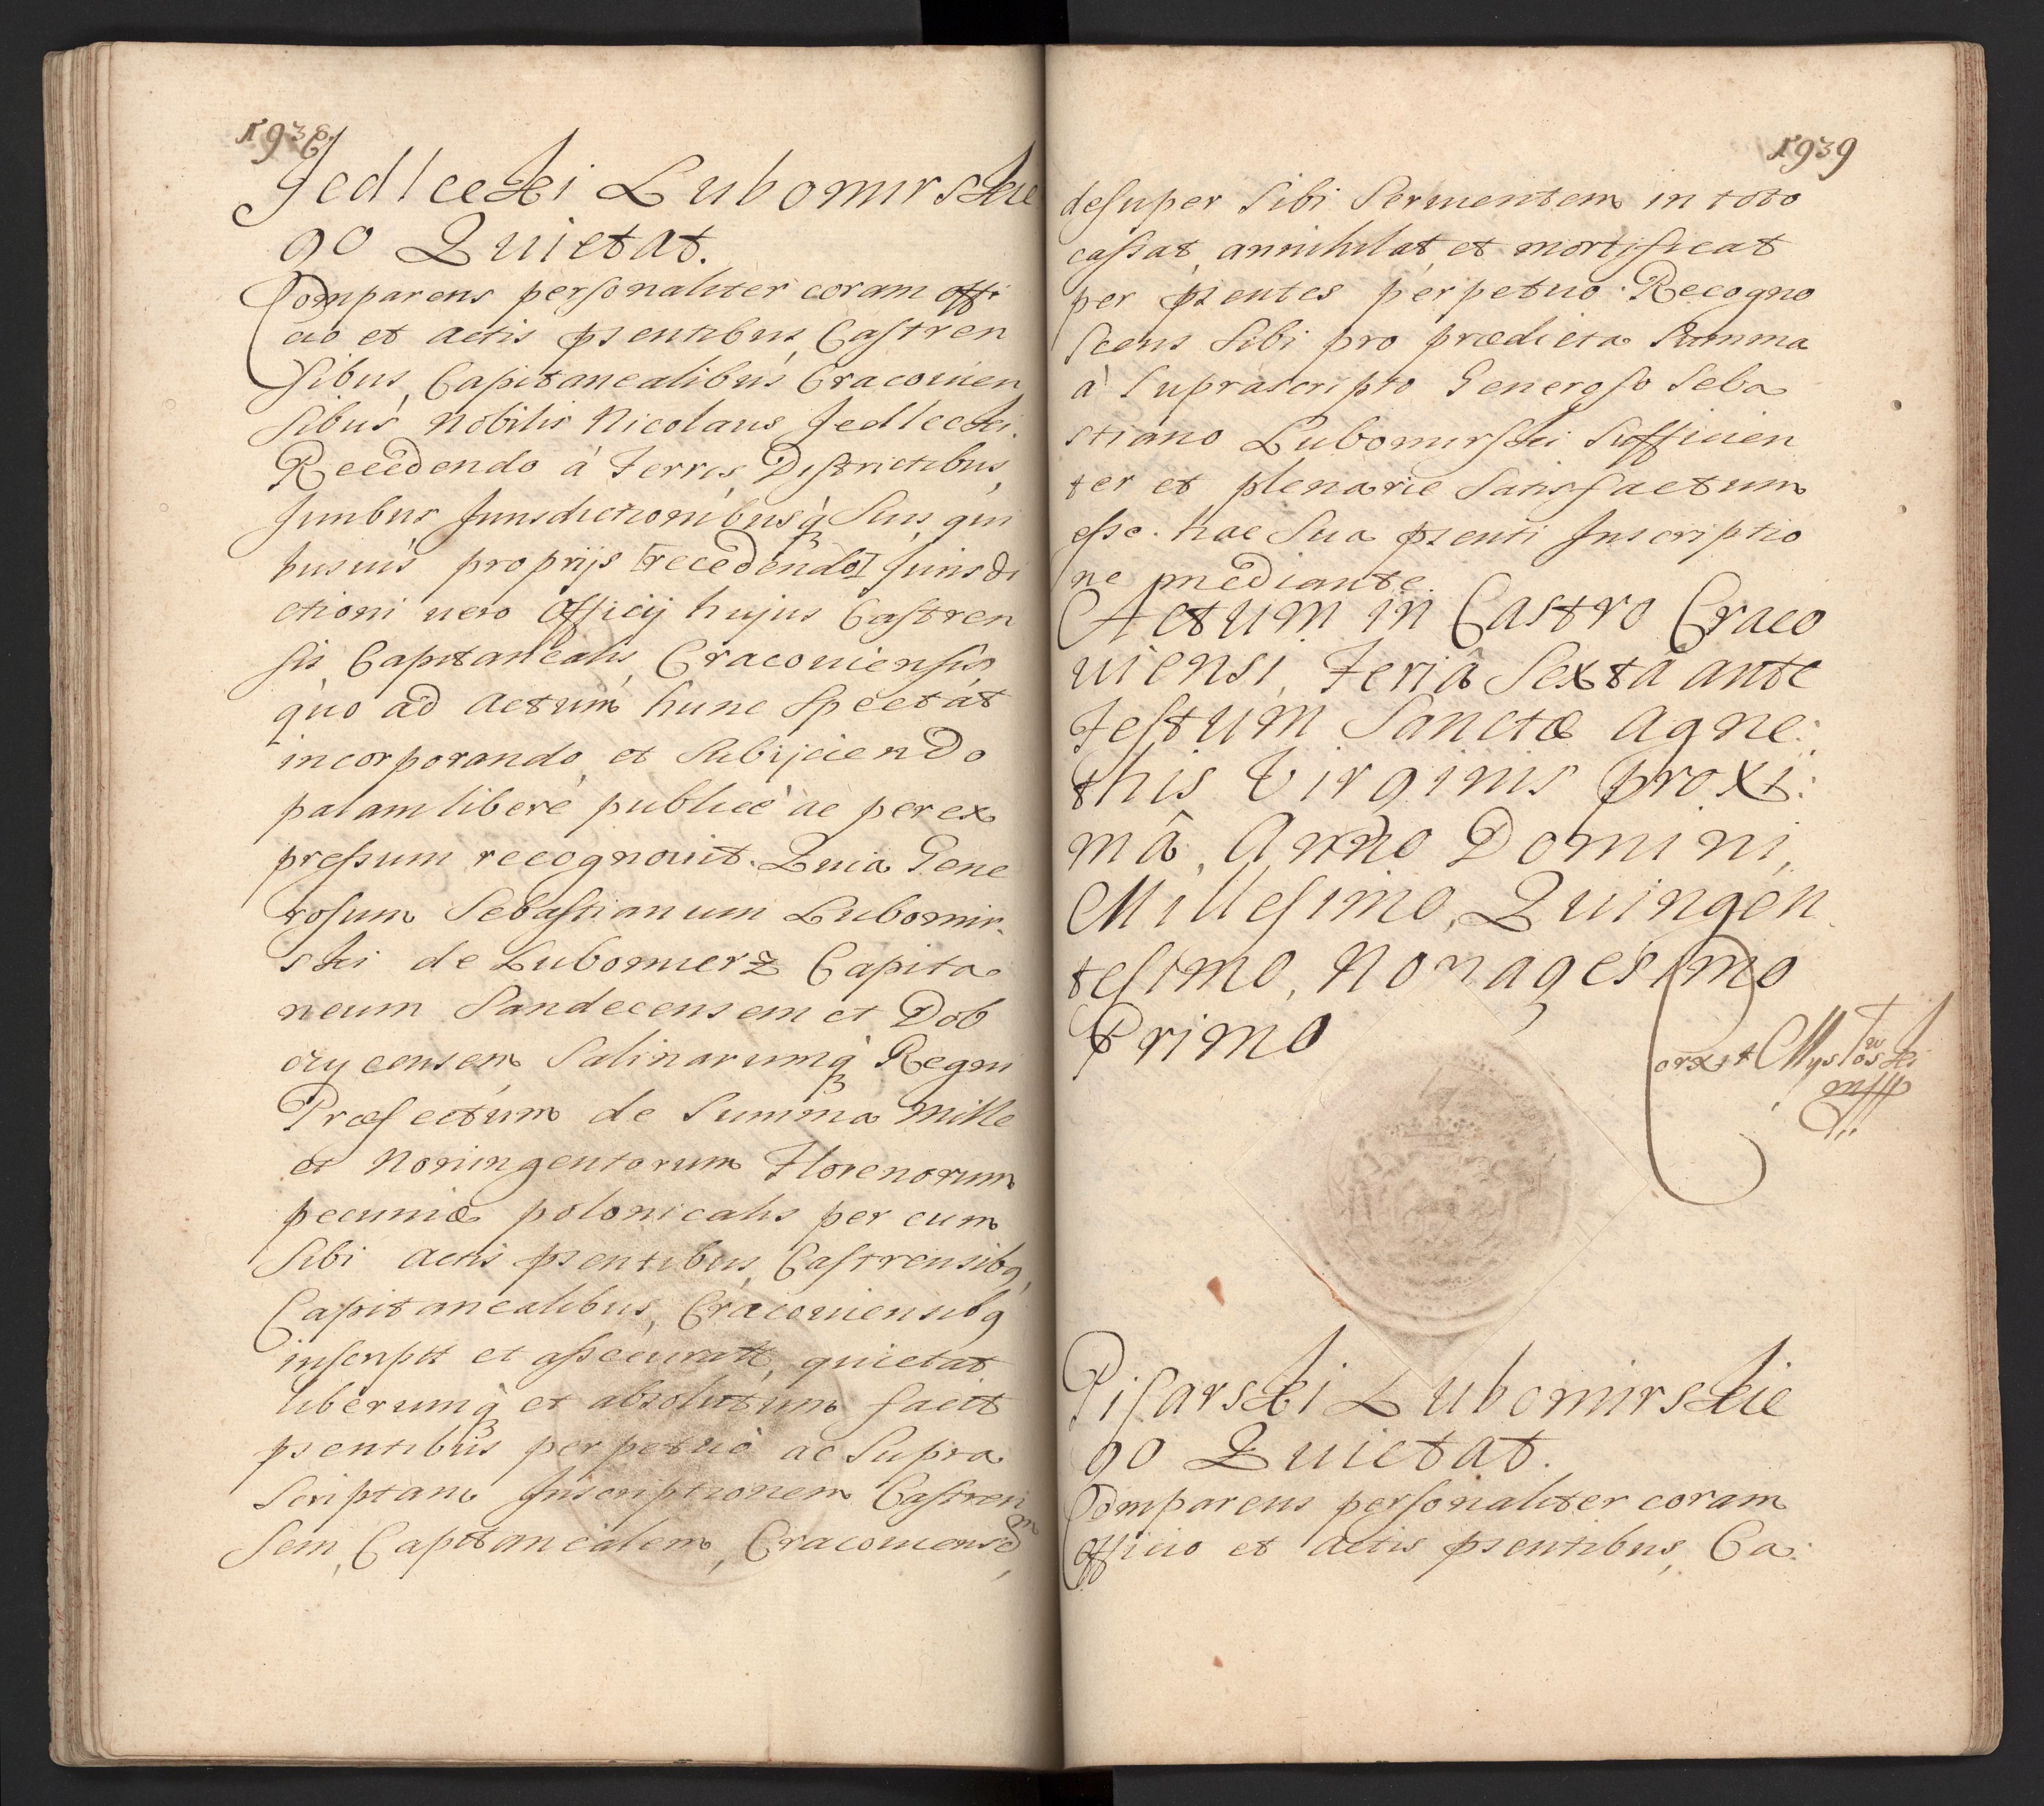 1938.
Jedlecki Lubomirskie
go Quietat.
Comparens personaliter coram offi
cio et actis psentibus Castren
sibus, Capitanealibus Cracovien
sibus Nobilis Nicolaus Jedlecki.
Recedendo à Terris, Districtibus,
Juribus Jurisdictionibusq3 Suis qui
busuis proprijs [recedendo] Jurisdi
ctioni vero Officij hujus Castren
sis, Capitanealis, Cracoviensis,
quo ad actum hunc Spectat
incorporando, et Subijciendo
palam liberè publicè ac per ex
pressum recognovit. Quia Gene
rosum Sebastianum Lubomir-
ski de Lubomierz Capita
neum Sandecensem et Dob
czycensem Salinarumq3 Regni
Præfectum de Summa Mille
et Noningentorum Florenorum
pecuniæ polonicalis per eum
Sibi actis psentibus, Castrensibq,
Capitanealibus, Cracoviensibq
inscriptt et assecuratt, quietat
liberumq3 et absolutum facit
psentibus perpetuò ac Supra
Scriptam Inscriptionem Castren
sem, Capitanealem, Cracoviensem,
1939
desuper Sibi Servientem in toto
cassat, annihilat, et mortificat
per psentes perpetuo. Recogno
scens Sibi pro prædicta Summa
à Suprascripto Generoso Seba
stiano Lubomirski Sufficien
ter et plenarie Satisfactum
esse. hac Sua psenti Inscriptio
ne mediante.
Actum in Castro Craco
viensi, Feriâ Sextâ ante
Festum Sanctæ Agne:
this Virginis proxi:
mâ, Anno Domini,
Millesimo, Quingen
tesimo, Nonagesimo
Primo
Corxit Mystkowski
mpp
Pisarski Lubomirskie
go Quietat.
Comparens personaliter coram
Officio et actis psentibus, Ca: